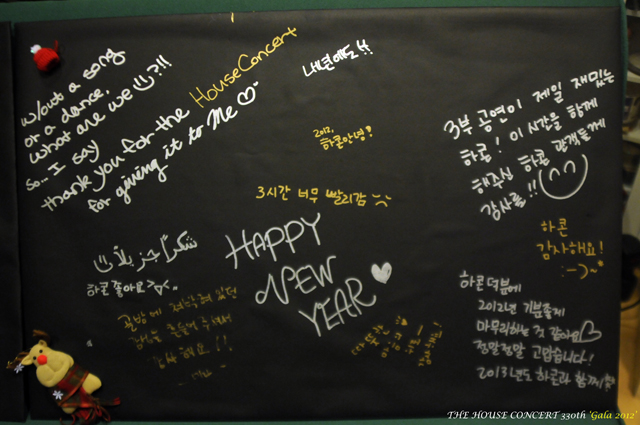 w/out a song
or a dance,
what are we ?!!
so... I say
thank you for the HouseConcert
for giving it to Me ♡
내년에도!!
2012,
하콘안녕?
3시간 너무 빨리감
3부 공연이 제일 재밌는
하콩! 이 시간을 함께
해주신 하콘 관객들께
감사를!!
하콘
감사해요!
:-)~
شكراً جزيلاً
하콘 좋아요 >v<..
HAPPY
NEW
YEAR ♡
골방에
감사해요!!
하콘 덕분에
2012년 기분좋게
마무리하는 것 같아요♡
정말정말 고맙습니다!
2013년도 하콘과 함께!
THE HOUSE CONCERT 330th 'Gala 2012'